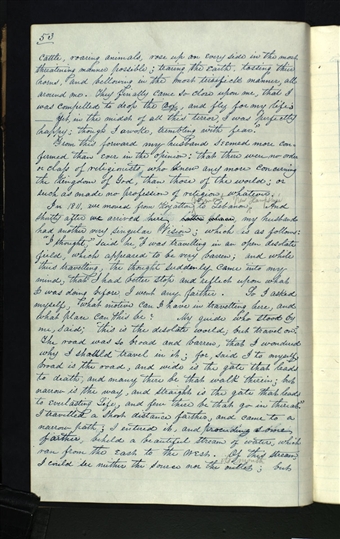 53
cattle, roaring animals, rose up on every side in the most
threatening manner possible; tearing the earth, tossing their
horns, and bellowing in the most terrifick manner, all
around me. They finally came so close upon me, that I
was compelled to drop the Box, and fly for my life;
Yet in the midst of all this terror, I was perfectly
happy; though I awoke, trembling with fear."
From this forward my husband seemed more con-
firmed than ever in the opinion; that there were no order
or class of religionists, who knew any more concerning
the Kingdom of God, than those of the world; or
such as made no profession of religion, whatever.
In 1811, we moved from Royalton, to Lebanon, And
shortly after we arrived here, my husband
had another very singular Vision; which is as follows:
"I thought," said he, "I was travelling in an open desolate
field, which appeared to be very barren; and while
thus travelling, the thought suddenly came into my
mind, that I had better stop and reflect upon what
I was doing before I went any farther. So I asked
myself, What motive can I have in travelling here, and
what place can this be? My guide who stood by
me, said; this is the desolate world, but travel on.
The road was so broad and barren, that I wondered
why I should travel in it; for, said I to myself,
broad is the road, and wide is the gate that leads
to death, and many there be that walk therein; but
narrow is the way, and straight is the gate that leads
to everlasting life, and few there be that go in thereat
I travelled a short distance farther, and came to a
narrow path; I entered it, and proceeding some
farther, beheld a beautiful stream of water, which
ran from the East to the West. Of this stream
I could see neither the source nor the outlet; but